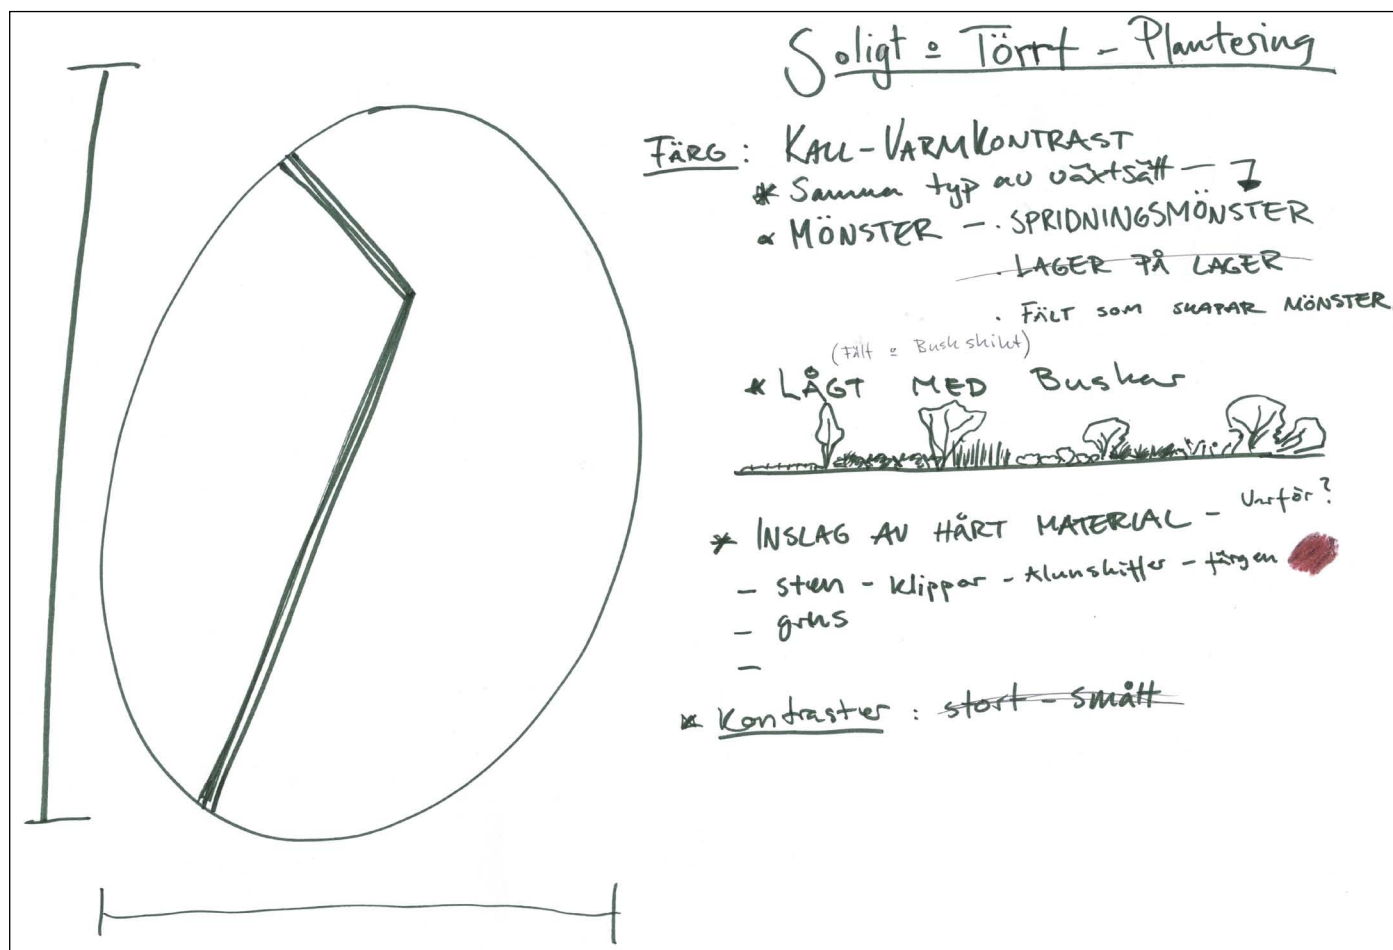 Soligt o Törrt - Plantering
FÄRG: KALL-VARMKONTRAST
* Samma typ av växtsätt -
* MÖNSTER - . SPRIDNINGSMÖNSTER
. LAGER PÅ LAGER
. FÄLT SOM SKAPAR MÖNSTER
(Fält o Buskskikt)
* LÅGT MED Buskar
* INSLAG AV HÅRT MATERIAL - Varför?
- sten - klippor - Alunskiffer - färgen
- grus
-
* Kontraster: stort - smått